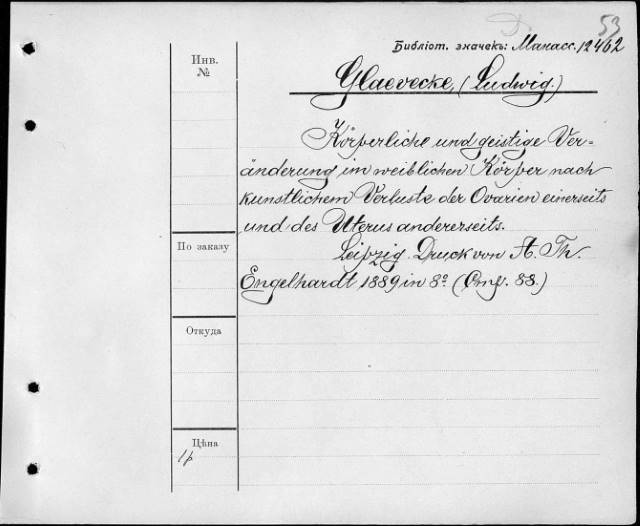 53
Библіот. значекъ: Манасс. 12462
Инв.
№
Glaevecke, (Ludwig.)
Körperliche und geistige Ver-
änderung im weiblichen Körper nach
kunstlichem Verluste der Ovarien einerseits
und des Uterus andererseits.
Leipzig. Druck von A. Th.
Engelhardt 1889 in 8º (88.)
По заказу
Откуда
Цѣна
1р